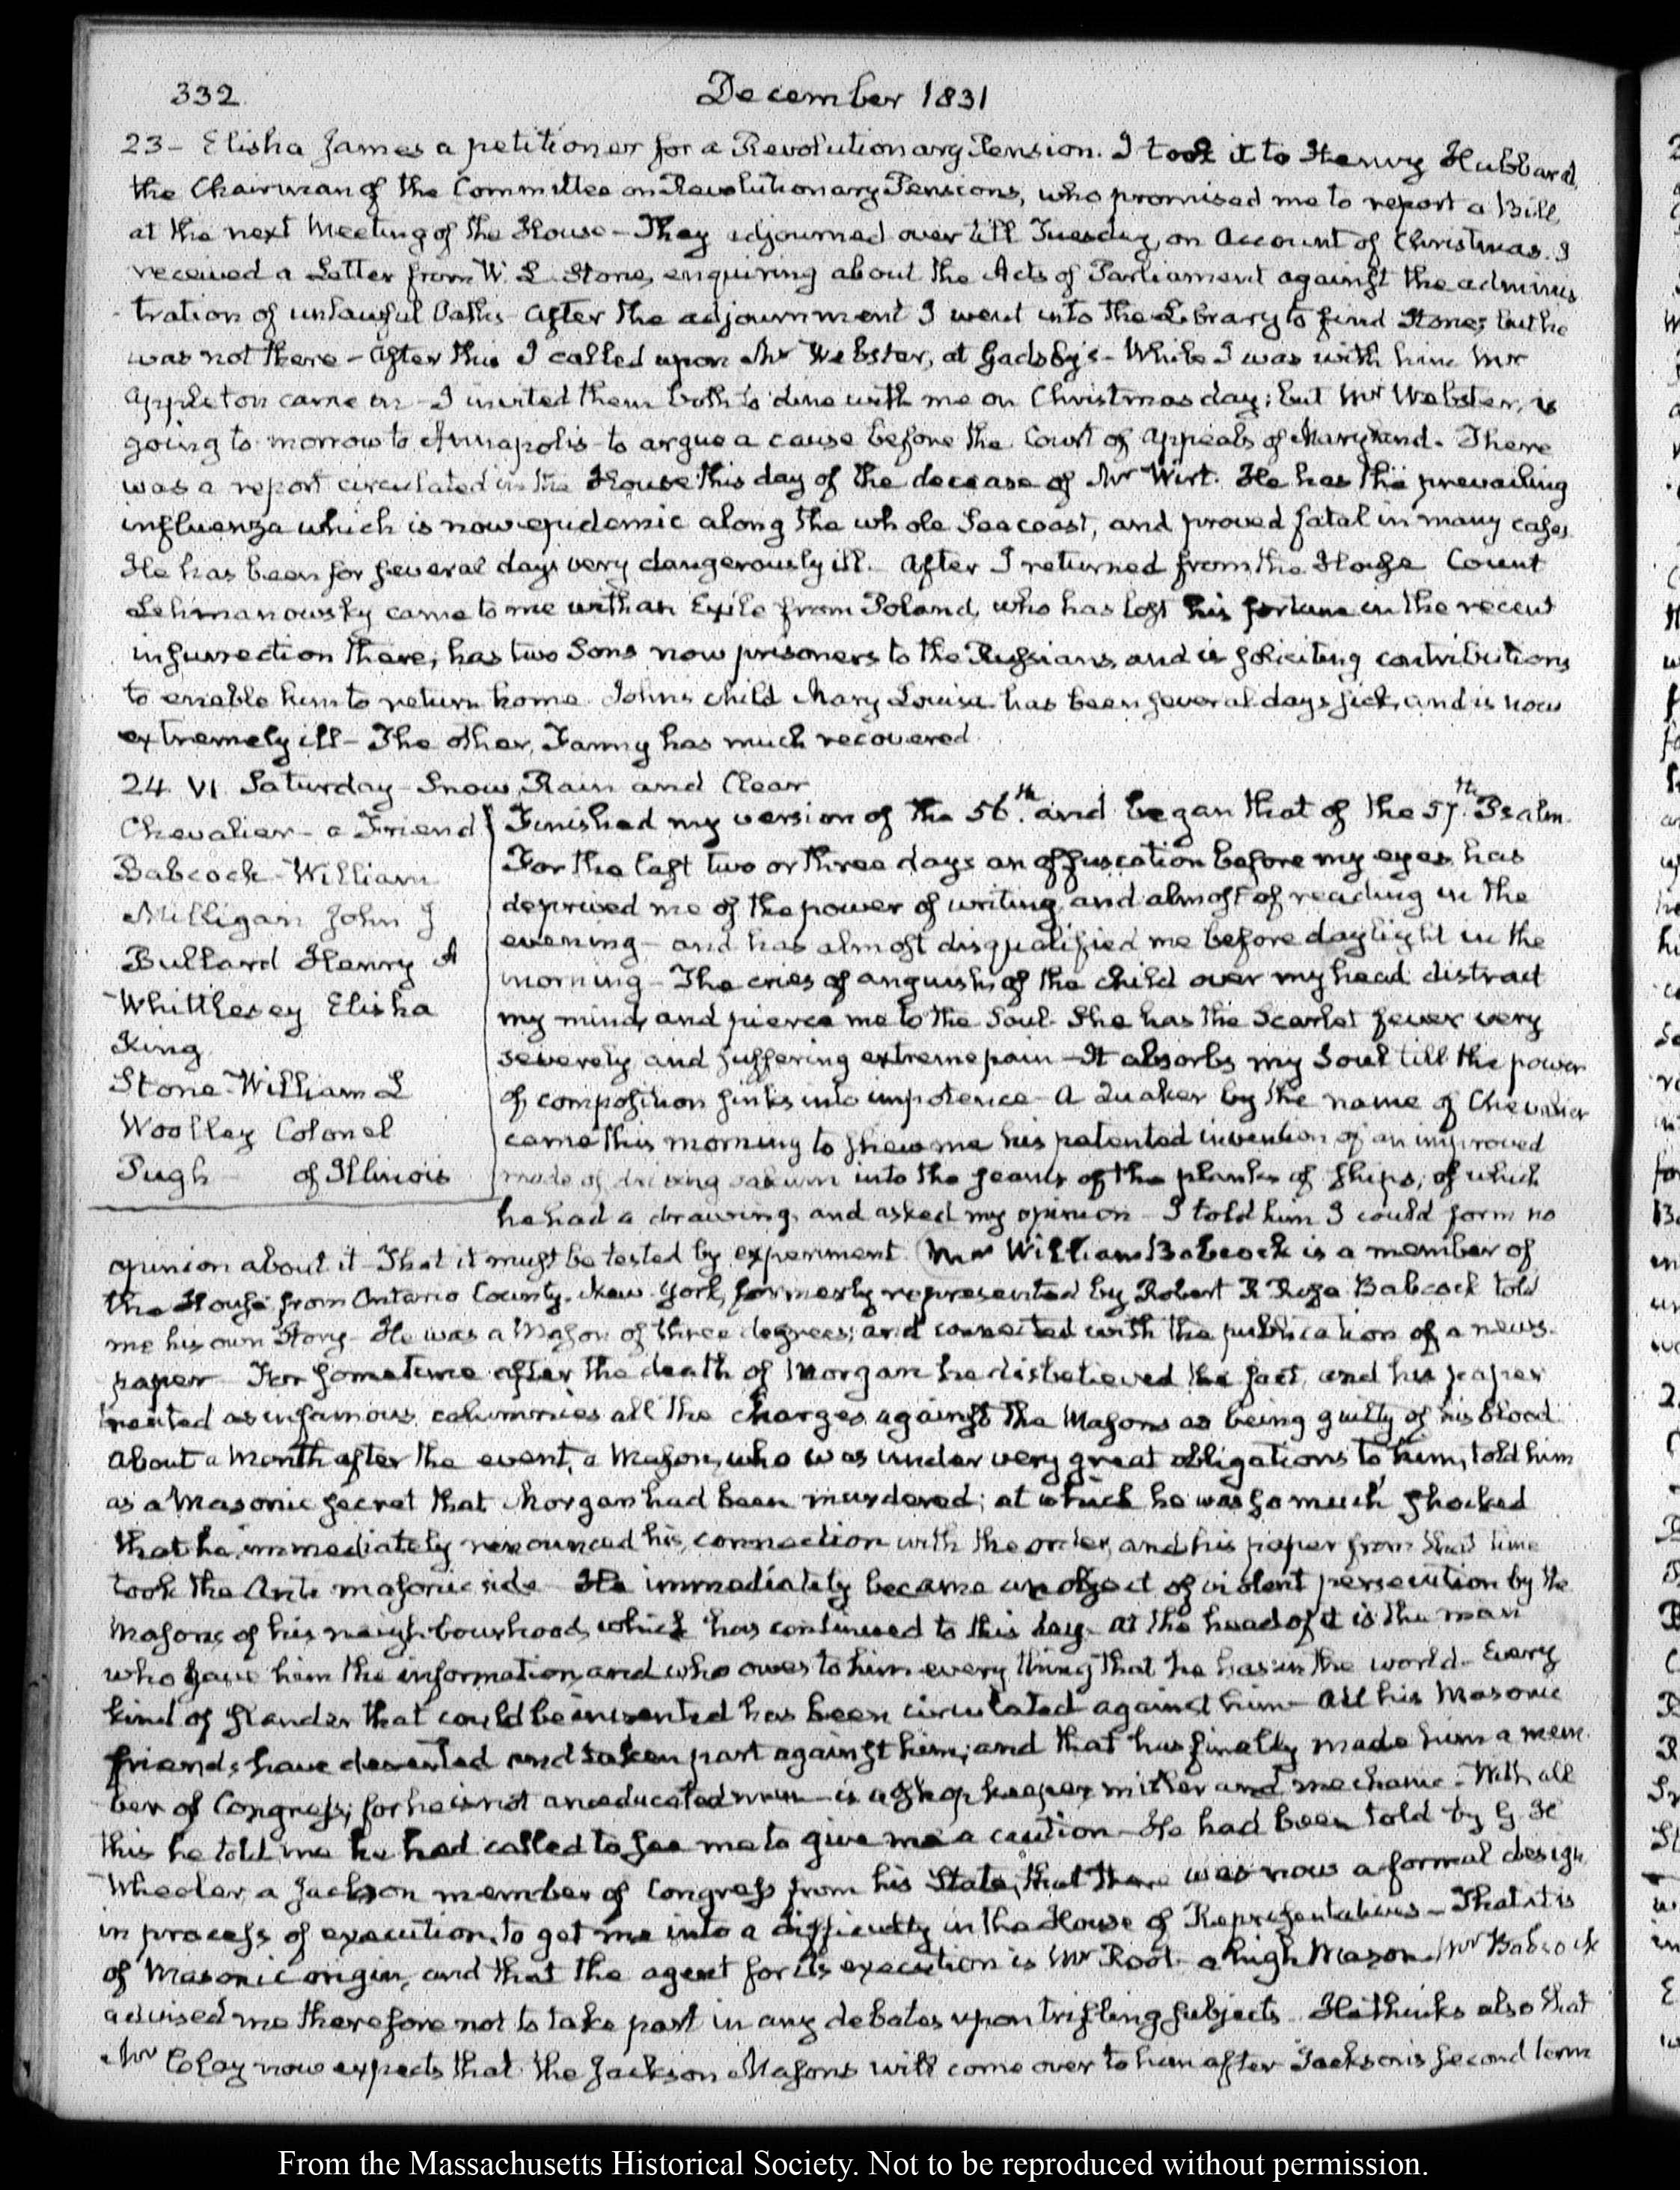 332
December 1831
23- Elisha James a petitioner for a Revolutionary Pension. I took it to Henry Hubbard,
the Chairman of the Committee on Revolutionary Pensions, who promised me to report a Bill
at the next Meeting of the House - They adjourned over till Tuesday, on Account of Christmas. I
received a Letter from W. L. Stone, enquiring about the Acts of Parliament against the adminis
tration of unlawful Oaths - After the adjournment I went into the Library to find Stone; but he
was not there - After this I called upon Mr Webster, at Gadsby's - While I was with him Mr
Appleton came in - I invited them both to dine with me on Christmas day; but Mr Webster, is
going to-morrow to Annapolis to argue a cause before the Court of Appeals of Maryland. There
was a report circulated in the House this day of the decease of Mr Wirt. He has the prevailing
influenza which is now epidemic along the whole Sea coast, and proved fatal in many cases
He has been for several days very dangerously ill. After I returned from the House Count
Lehmanowsky came to me with an Exile from Poland, who has lost his fortune in the recent
insurrection there; has two Sons now prisoners to the Russians, and is soliciting contributions
to enable him to return home. Johns child Mary Louisa has been several days sick, and is now
extremely ill - The other, Fanny has much recovered.
24. VI. Saturday - Snow, Rain and Clear
Chevalier - a Friend
Babcock - William
Milligan John J
Bullard Henry A
Whittlesey Elisha
King
Stone - William L
Woolley Colonel
Pugh - of Illinois
Finished my version of the 56th. and began that of the 57th. Psalm.
For the last two or three days an offuscation before my eyes has
deprived me of the power of writing, and almost of reading in the
evening - and has almost disqualified me before daylight in the
morning - The cries of anguish, of the child over my head distract
my mind, and pierce me to the Soul. She has the Scarlet fever very
severely and suffering extreme pain - It absorbs my Soul till the power
of composition sinks into impotence - A Quaker by the name of Chevalier
came this morning to shew me his patented invention of an improved
mode of driving oakum into the seams of the planks of ships; of which
he had a drawing, and asked my opinion - I told him I could form no
opinion about it - That it must be tested by experiment. (Mr William Babcock is a member of
the House from Ontario County, New-York, formerly represented by Robert R Rose. Babcock told
me his own Story - He was a Mason of three degrees; and connected with the publication of a news-
paper - For sometime after the death of Morgan he disbelieved the fact, and his paper
treated as infamous calumnies all the charges against the Masons as being guilty of his blood
About a Month after the event, a Mason, who was under very great obligations to him, told him
as a Masonic secret that Morgan had been murdered; at which he was so much shocked
that he immediately renounced his connection with the order, and his paper from that time
took the Anti masonic side - He immediately became an object of violent persecution by the
Masons of his neighbourhood, which has continued to this day. At the head of it is the man
who gave him the information, and who owes to him every thing that he has in the world - Every
kind of slander that could be invented has been circulated against him - All his Masonic
friends have deserted and taken part against him; and that has finally made him a mem-
ber of Congress; for he is not an educated man - is a shop keeper and mechanic - With all
this he told me he had called to see me to give me a caution - He had been told by G. H
Wheeler, a Jackson member of Congress from his State, that there was now a formal design
in process of execution, to get me into a difficulty in the House of Representatives - That it is
of Masonic origin, and that the agent for its execution is Mr Root - a high Mason. Mr Babcock
advised me therefore not to take part in any debates upon trifling subjects. He thinks also that
Mr Clay now expects that the Jackson Masons will come over to him after Jackson's second term
From the Massachusetts Historical Society. Not to be reproduced without permission.